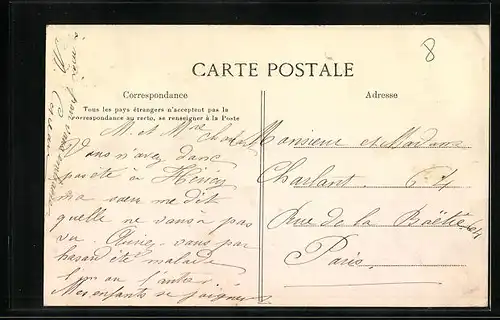 8
CARTE POSTALE
Correspondance
Adresse
Tous les pays étrangers n'acceptent pas la
correspondance au recto, se renseigner à la Poste
M. et Mme
Vous n'avez donc
pas été à
ma sœur me dit
quelle ne vous à pas
vu. vous par
hasard été malade
l'un ou l'autre
Mes enfants se
Monsieur et Madame
Charlant 64
Rue de la Boëtie 64
Paris